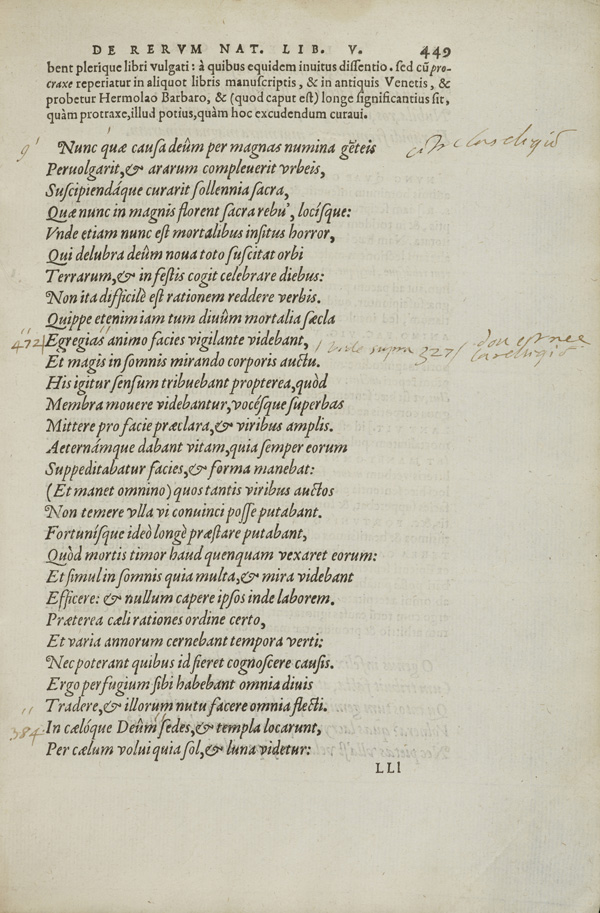 DE RERVM NAT. LIB. V. 449
bent plerique libri vulgati: à quibus equidem inuitus dissentio. sed cũ pro-
craxe reperiatur in aliquot libris manuscriptis, & in antiquis Venetis, &
probetur Hermolao Barbaro, & (quod caput est) longe significantius sit,
quàm protraxe, illud potius, quàm hoc excudendum curaui.
9'
Nunc quæ causa deûm per magnas numina gẽteis
Peruolgarit, & ararum compleuerit vrbeis,
Suscipiendáque curarit sollennia sacra,
Quæ nunc in magnis florent sacra rebu', locísque:
Vnde etiam nunc est mortalibus insitus horror,
Qui delubra deûm noua toto suscitat orbi
Terrarum, & in festis cogit celebrare diebus:
Non ita difficilè est rationem reddere verbis.
Quippe etenim iam tum diuûm mortalia sæcla
472 Egregias animo facies vigilante videbant, supra 327
Et magis in somnis mirando corporis auctu.
His igitur sensum tribuebant propterea, quòd
Membra mouere videbantur, vocésque superbas
Mittere pro facie præclara, & viribus amplis.
Aeternámque dabant vitam, quia semper eorum
Suppeditabatur facies, & forma manebat:
(Et manet omnino) quos tantis viribus auctos
Non temere vlla vi conuinci posse putabant.
Fortunísque ideò longè præstare putabant,
Quòd mortis timor haud quenquam vexaret eorum:
Et simul in somnis quia multa, & mira videbant
Efficere: & nullum capere ipsos inde laborem.
Præterea cæli rationes ordine certo,
Et varia annorum cernebant tempora verti:
Nec poterant quibus id fieret cognoscere causis.
Ergo perfugium sibi habebant omnia diuis
Tradere, & illorum nutu facere omnia flecti.
384 In cælóque Deûm sedes, & templa locarunt,
Per cælum volui quia sol, & luna videtur:
LLl